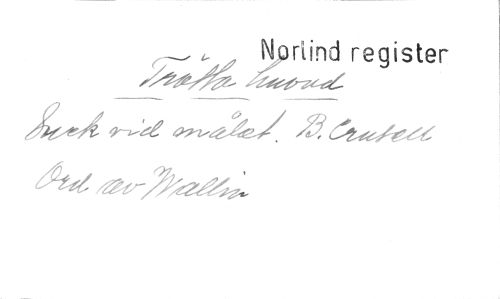 Norlind register
Trötta huvud
Suck vid målet. B. Crusell
Ord av Wallin